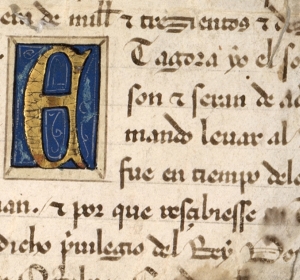 era de mill ⁊ trezientos ⁊ 
E Tagora yo el 
son ⁊ seran de 
mando leuar al
fue en tiempo dele
⁊ por que rescibiesse
dicho priuilegio del Rey